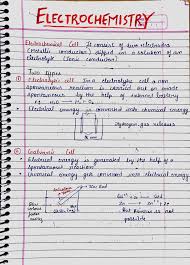 ELECTROCHEMISTRY
Electrochemical Cell It consist of two electrodes
(metallic conductors) dipped in a solution of an
electrolyte (ionic conductor)
Two types
① Electrolytic Cell In a electrolytic cell a non
spontaneous reaction is carried out or made
spontaneous by the help of external battery
Electrical energy is converted into chemical energy
Hydrogen gas releases
② Galvanic Cell
Electrical energy is generated by the help of a
spontaneous reaction
Chemical energy is converted into electrical energy
Zinc Rod
But Reverse is not
possible